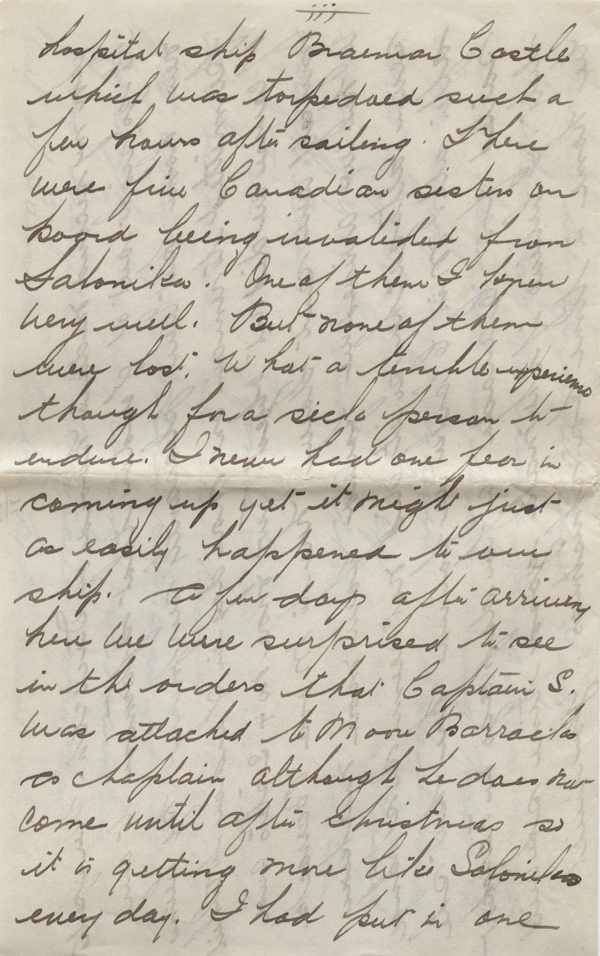 iii
hospital ship Braemar Castle
which was torpedoed such a
few hours after sailing. There
were five Canadian sisters on
board being invalided from
Salonika. One of them I knew
very well. But none of them
were lost. What a terrible experience
though for a sick person to
endure. I never had one fear in
coming up yet it might just
as easily happened to our
ship. A few days after arriving
here we were surprised to see
in the orders that Captain S.
was attached to Moore Barracks
as chaplain although he does not
come until after christmas so
it is getting more like Salonika
every day. I had put in one